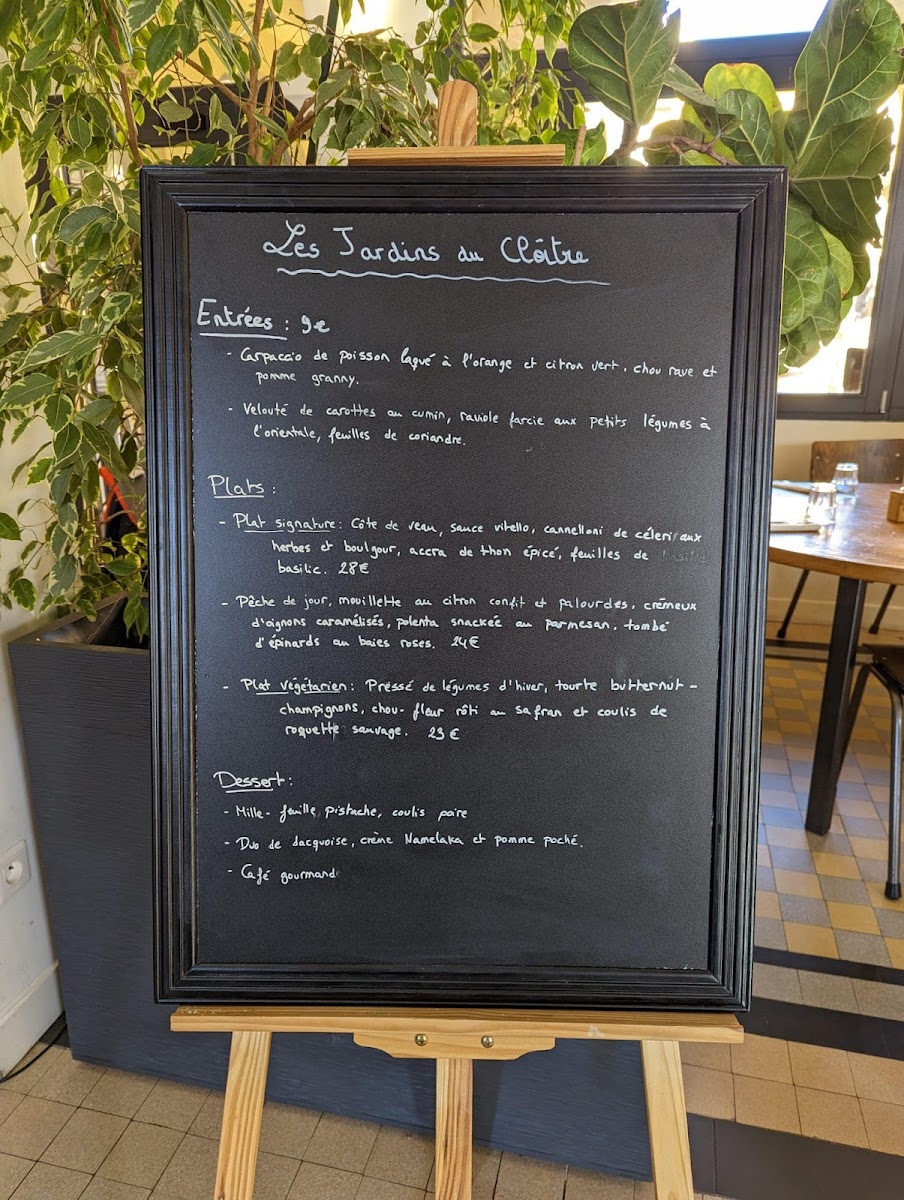 Les Jardins du Cloître
Entrées : 9€
- Carpaccio de poisson laqué à l'orange et citron vert, chou rave et
pomme granny.
- Velouté de carottes au cumin, raviole farcie aux petits légumes à
l'orientale, feuilles de coriandre.
Plats :
- Plat signature : Côte de veau, sauce vitello, cannelloni de céleri aux
herbes et boulgour, accra de thon épicé, feuilles de
basilic. 28€
- Pêche de jour, mouillette au citron confit et palourdes, crémeux
d'oignons caramélisés, polenta snackée au parmesan, tombé
d'épinards au baies roses. 24€
- Plat végétarien : Pressé de légumes d'hiver, tourte butternut -
champignons, chou-fleur rôti au safran et coulis de
roquette sauvage. 23€
Dessert :
- Mille-feuille, pistache, coulis poire
- Duo de dacquoise, crème Namelaka et pomme poché.
- Café gourmand